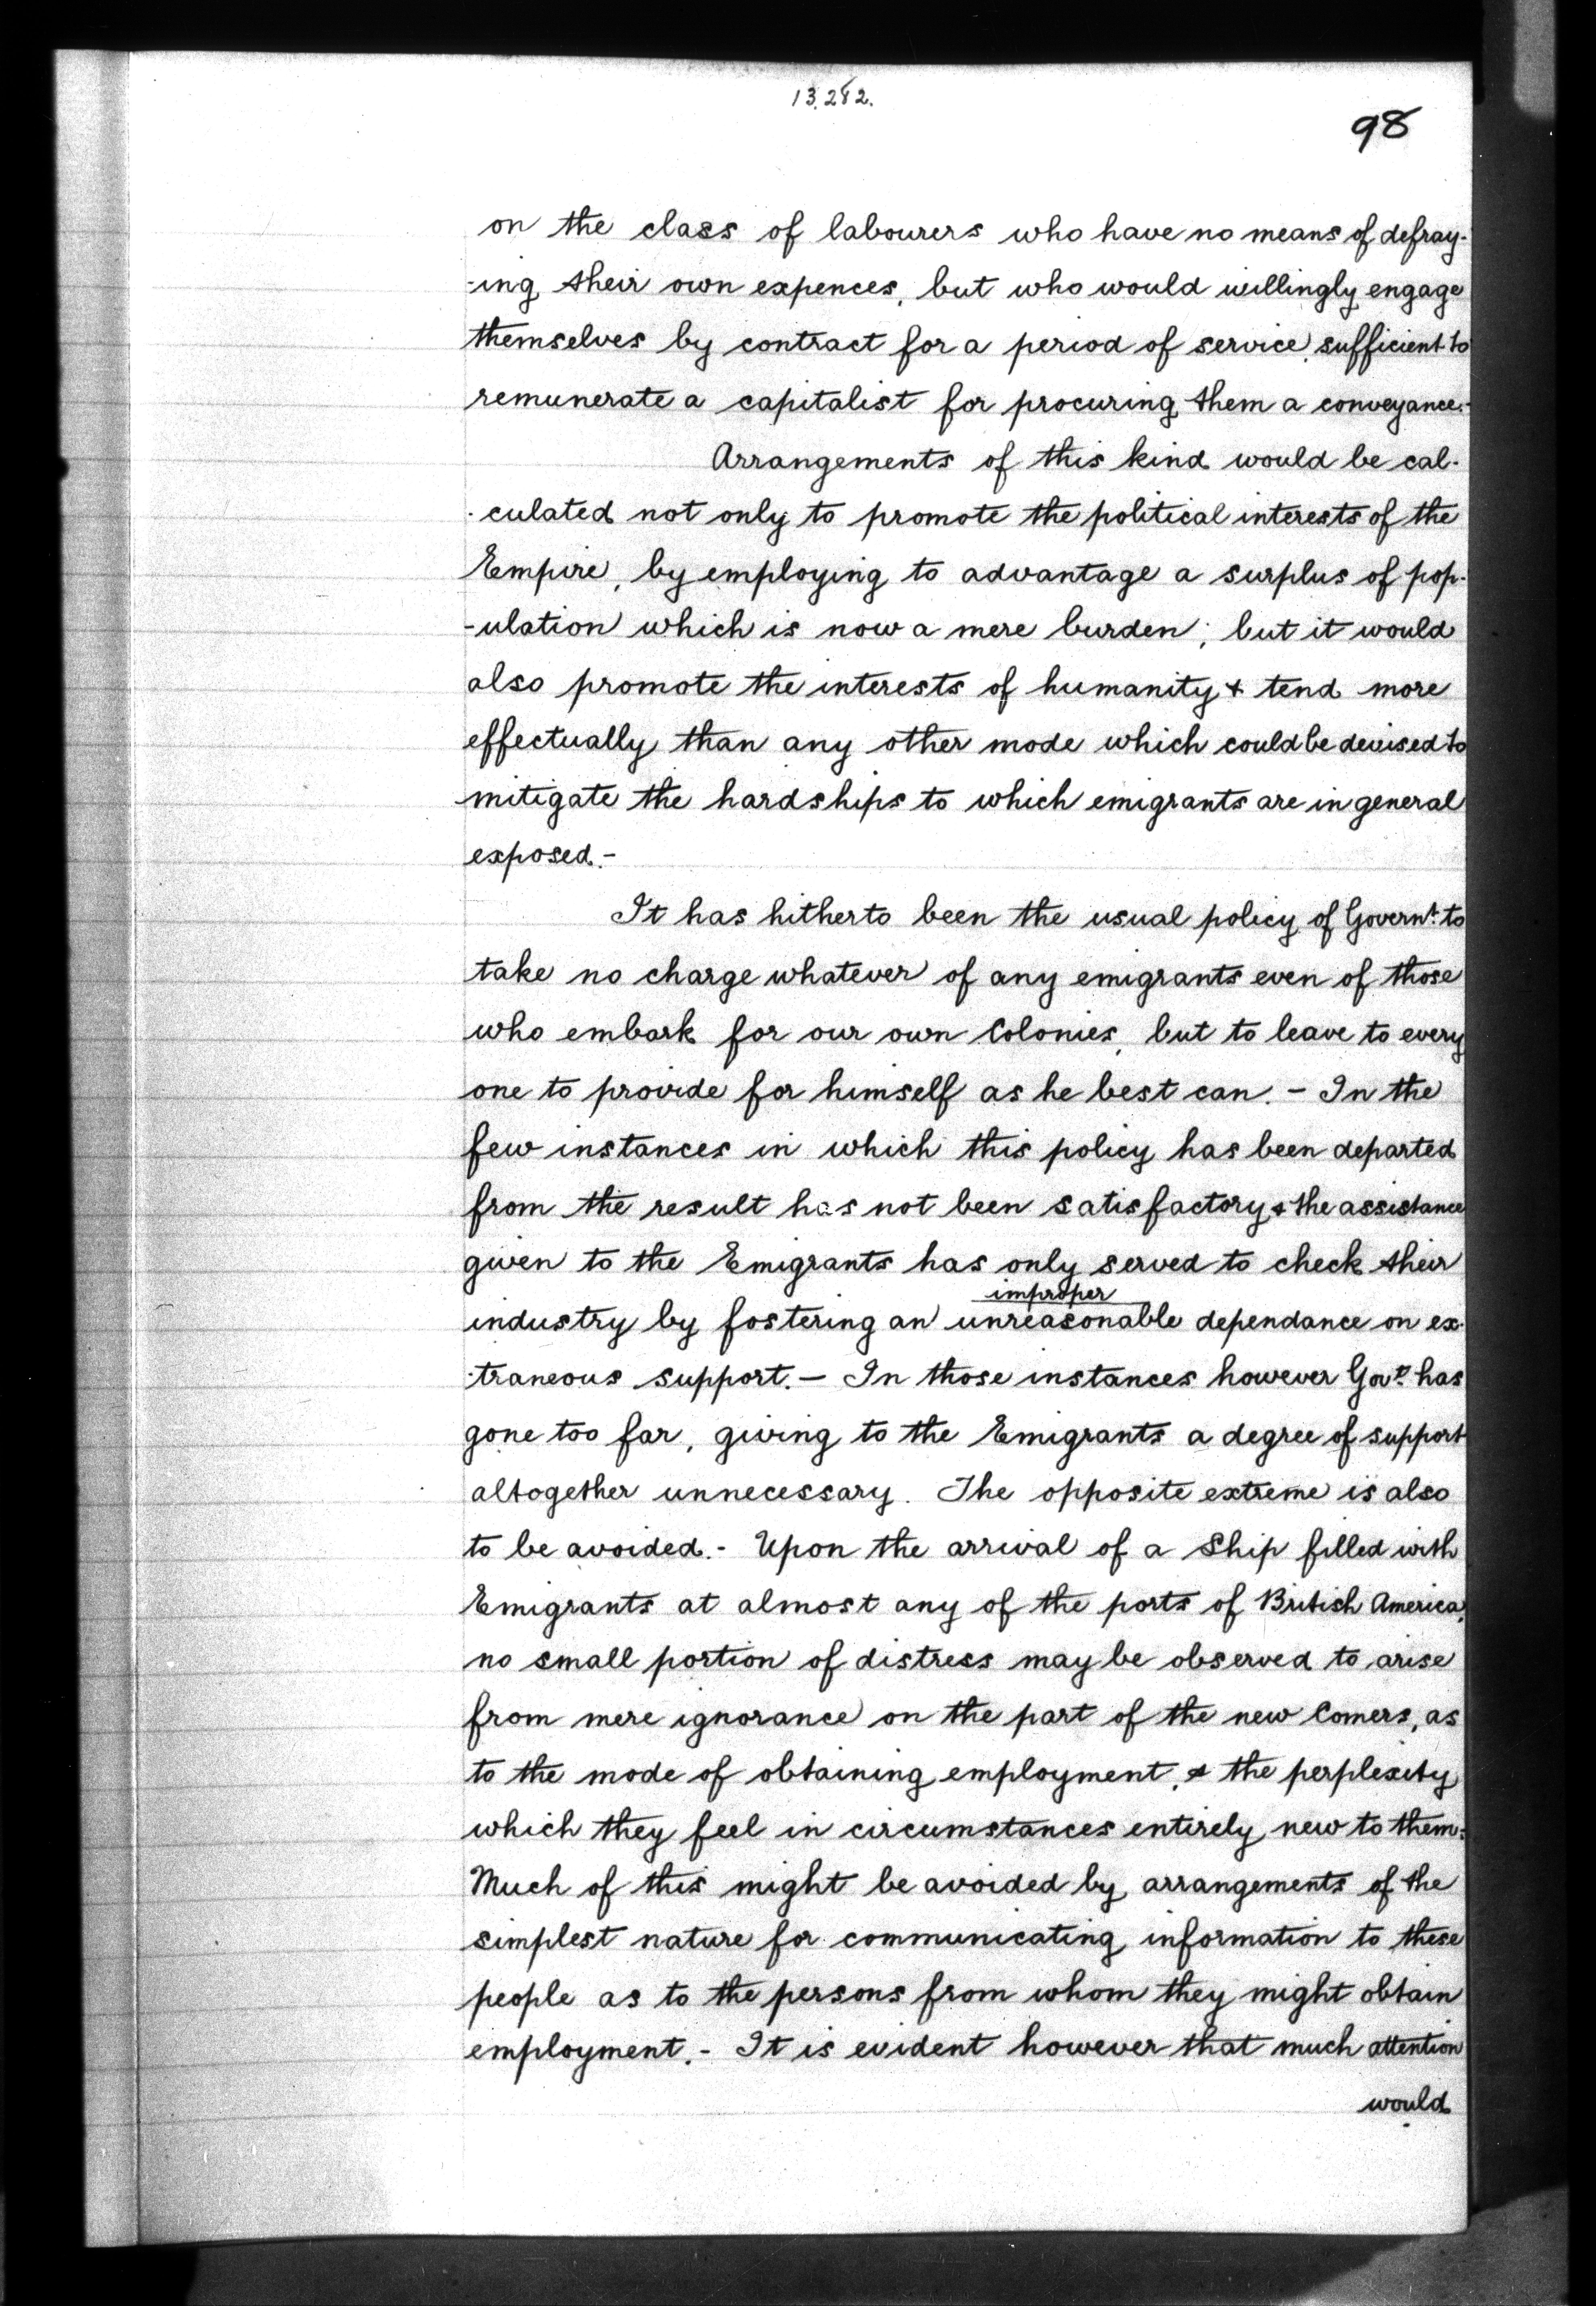 13.282.
98
on the class of labourers who have no means of defray-
-ing their own expences, but who would willingly engage
themselves by contract for a period of service, sufficient to
remunerate a capitalist for procuring them a conveyance.-
Arrangements of this kind would be cal-
-culated not only to promote the political interests of the
Empire, by employing to advantage a surplus of pop-
-ulation which is now a mere burden; but it would
also promote the interests of humanity & tend more
effectually than any other mode which could be devised to
mitigate the hardships to which emigrants are in general
exposed.-
It has hitherto been the usual policy of Governt. to
take no charge whatever of any emigrants even of those
who embark for our own Colonies, but to leave to every
one to provide for himself as he best can. - In the
few instances in which this policy has been departed
from the result has not been satisfactory & the assistance
given to the Emigrants has only served to check their
improper
industry by fostering an unreasonable dependance on ex-
-traneous support. - In those instances however Govt. has
gone too far, giving to the Emigrants a degree of support
altogether unnecessary. The opposite extreme is also
to be avoided.- Upon the arrival of a Ship filled with
Emigrants at almost any of the ports of British America,
no small portion of distress may be observed to arise
from mere ignorance on the part of the new Comers, as
to the mode of obtaining employment, & the perplexity
which they feel in circumstances entirely new to them:
Much of this might be avoided by arrangements of the
simplest nature for communicating information to these
people as to the persons from whom they might obtain
employment.- It is evident however that much attention
would